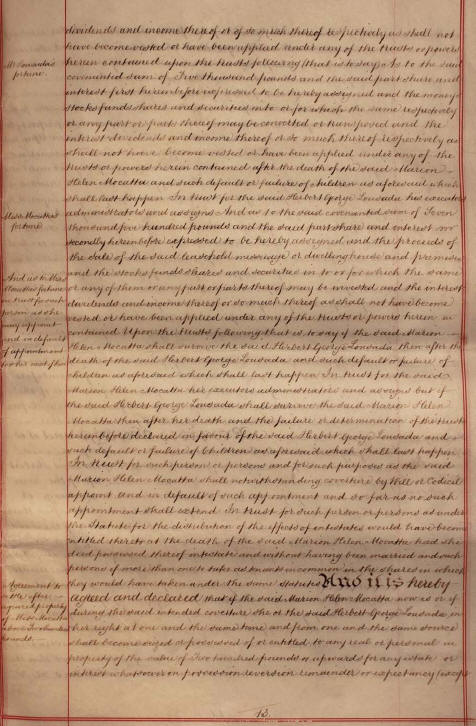 dividends and income thereof or of so much thereof respectively as shall not
have become vested or have been applied under any of the trusts or powers
herein contained upon the trusts following (that is to say) As to the said
Mr Lousada's
fortune.
covenanted sum of Five thousand pounds and the said part share and
interest first hereinbefore expressed to be hereby assigned and the moneys
stocks funds shares and securities into or for which the same respectively
or any part or parts thereof may be converted or transposed and the
interest dividends and income thereof or so much thereof respectively as
shall not have become vested or have been applied under any of the
trusts or powers herein contained after the death of the said Marion
Helen Mocatta and such default or failure of children as aforesaid which
shall last happen In trust for the said Herbert George Lousada his executors
Miss Mocatta's
fortune
administrators and assigns And as to the said covenanted sum of Seven
thousand five hundred pounds and the said part share and interest
secondly hereinbefore expressed to be hereby assigned and the proceeds of
the sale of the said leasehold messuage or dwellinghouse and premises
And as to Miss
Mocatta's fortune
in trust for such
person as she
may appoint
and in default
of appointment
to her next of kin
and the stocks funds shares and securities in to or for which the same
or any of them or any part or parts thereof may be invested and the interest
dividends and income thereof or so much thereof as shall not have become
vested or have been applied under any of the trusts or powers herein
contained Upon the trusts following that is to say if the said Marion
Helen Mocatta shall survive the said Herbert George Lousada then after the
death of the said Herbert George Lousada and such default or failure of
children as aforesaid which shall last happen In trust for the said
Marion Helen Mocatta her executors administrators and assigns but if
the said Herbert George Lousada shall survive the said Marion Helen
Mocatta then after her death and the failure or determination of the trusts
hereinbefore declared in favour of the said Herbert George Lousada and
such default or failure of Children as aforesaid which shall last happen
In trust for such person or persons and for such purposes as the said
Marion Helen Mocatta shall notwithstanding coverture by Will or Codicil
appoint and in default of such appointment and so far as no such
appointment shall extend In trust for such person or persons as under
the Statute for the distribution of the effects of intestates would have become
entitled thereto at the death of the said Marion Helen Mocatta had she
died possessed thereof intestate and without having been married and such
persons if more than one to take as tenants in common in the shares in which
they would have taken under the same statutes And it is hereby
Agreement to
settle after
acquired property
of Miss Mocatta
above Two hundred
pounds.
agreed and declared that if the said Marion Helen Mocatta now is or if
during the said intended coverture she or the said Herbert George Lousada in
her right at one and the same time and from one and the same source
shall become seized or possessed of or entitled to any real or personal
property of the value of Two hundred pounds or upwards for any estate or
interest whatsoever in possession reversion remainder or expectancy (except
13.